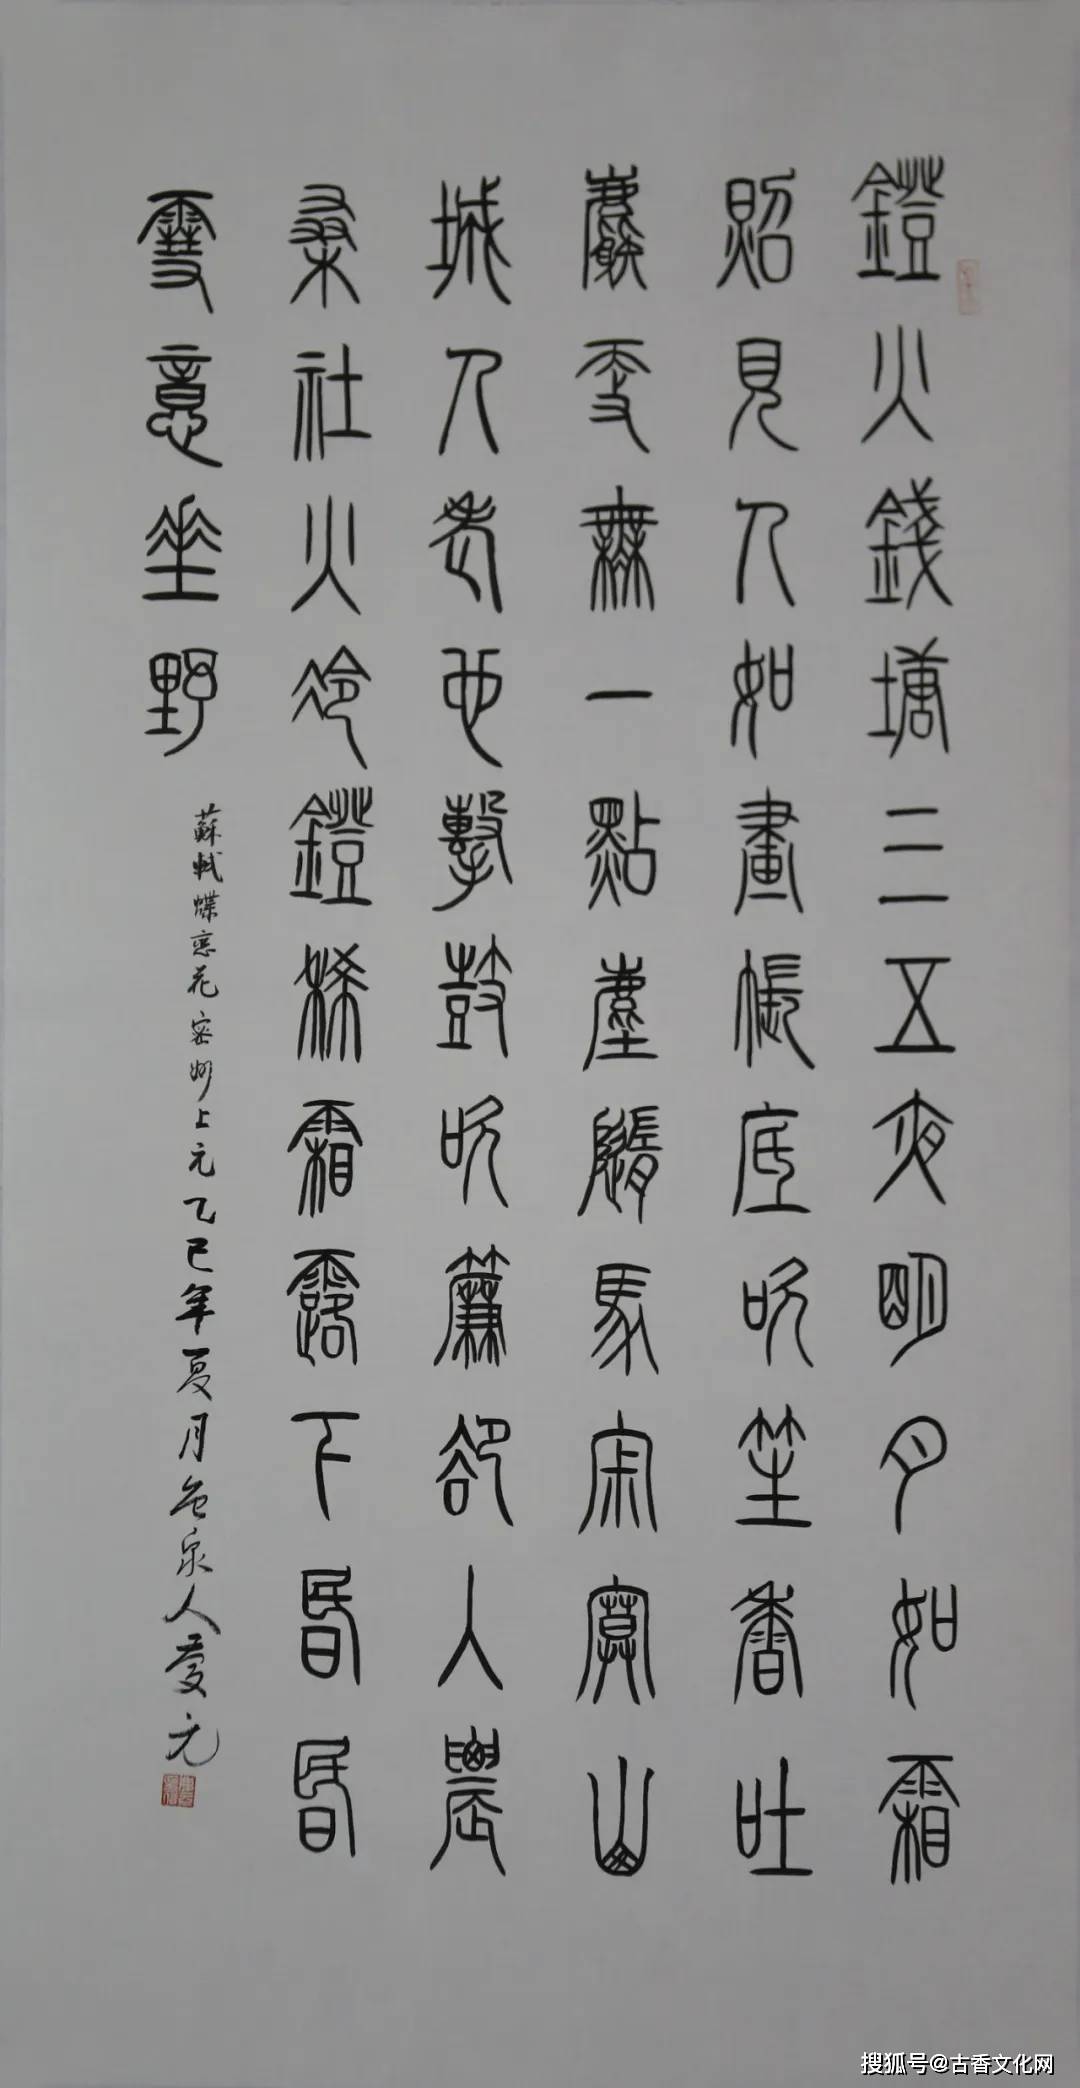 鐙火錢塘三五夜明月如霜
照見人如畫帳底吹笙香吐
麝更無一點塵隨馬寂寞山
城人老也擊鼓吹簫卻入農
桑社火冷鐙稀霜露下昏昏
雪意垂野
蘇軾蝶恋花密州上元乙巳年夏月泉人慶元
搜狐号@古香文化网